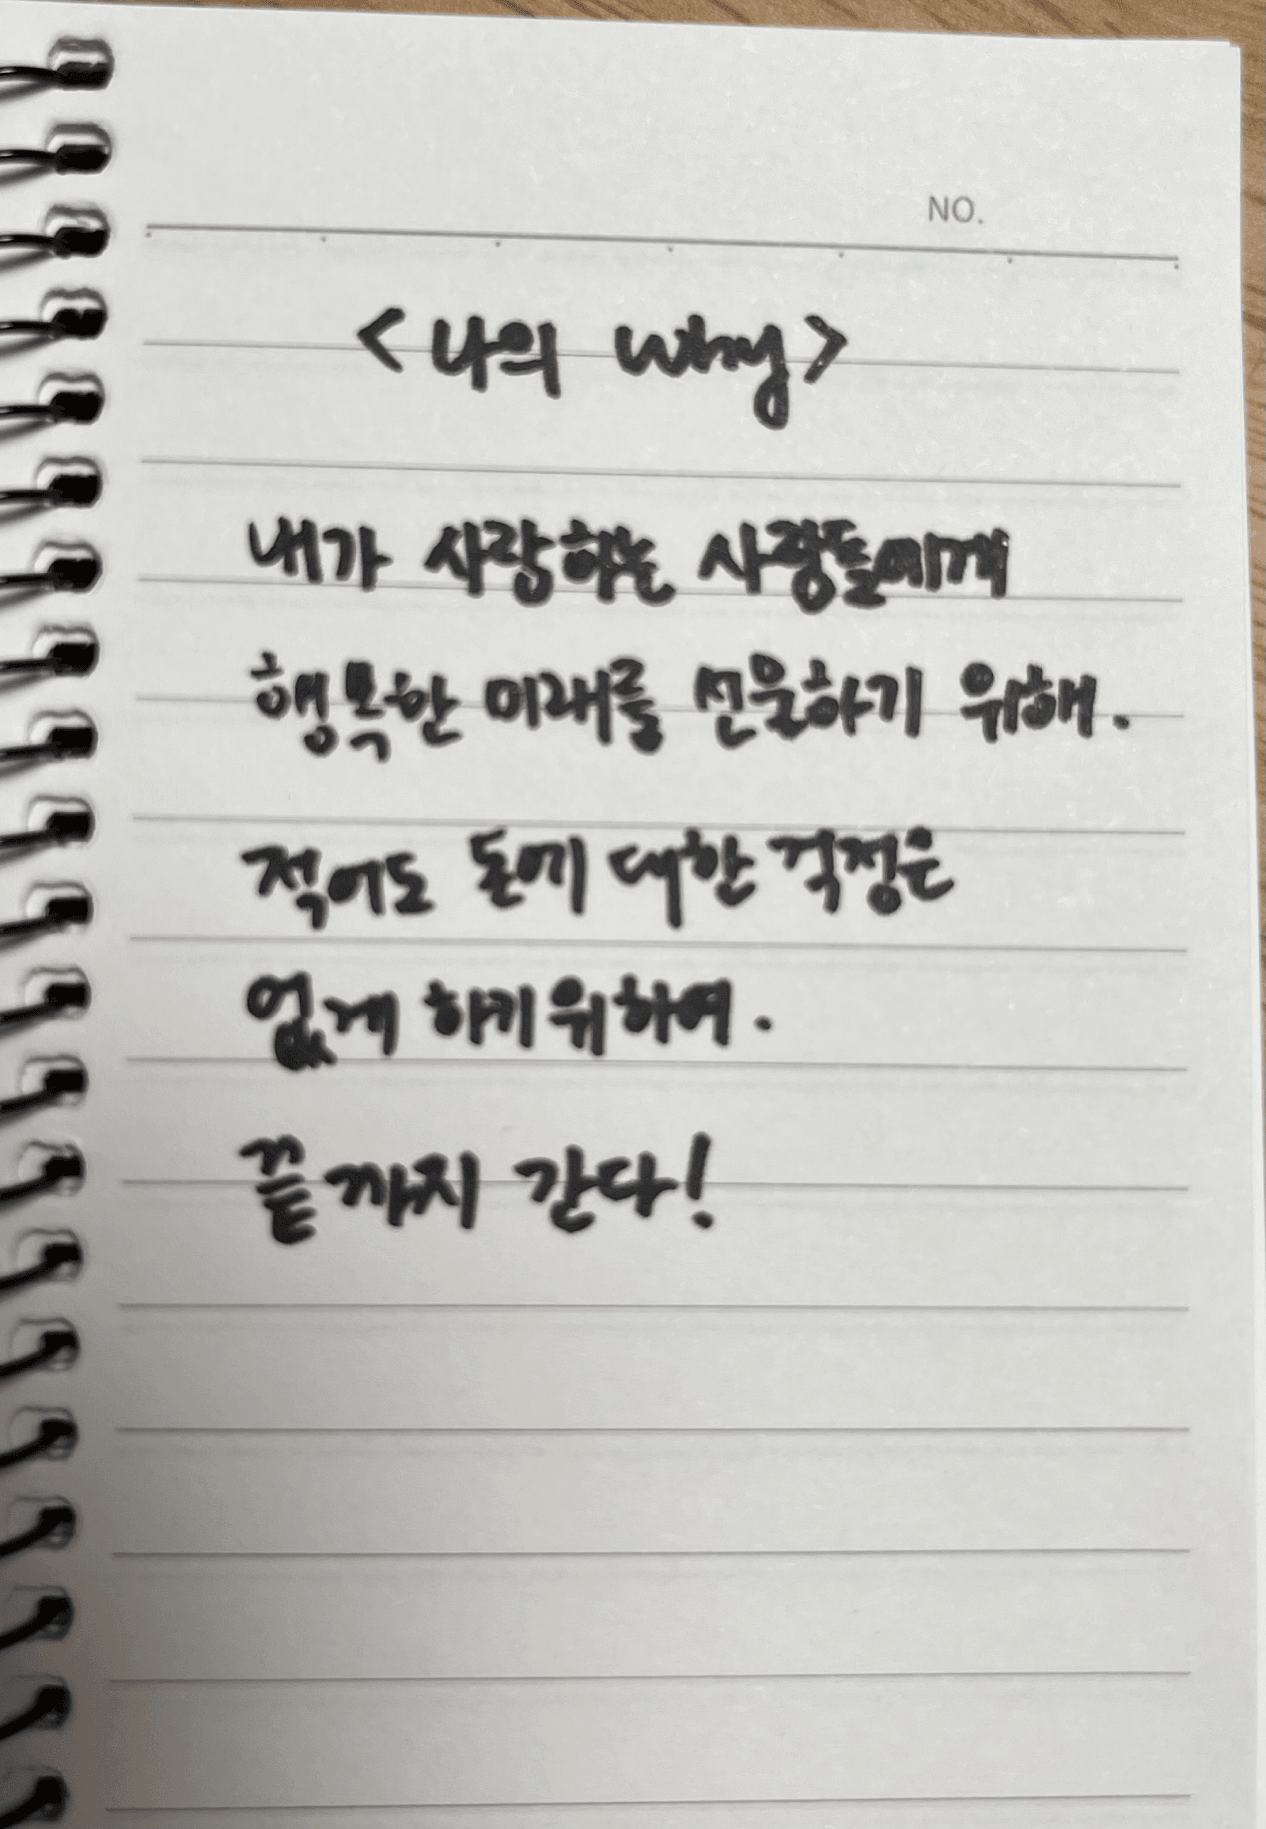 NO.
<나의 why>
내가 사랑하는 사람들에게
행복한 미래를 선물하기 위해.
적어도 돈에 대한 걱정은
없게 하기위하여.
끝까지 간다!